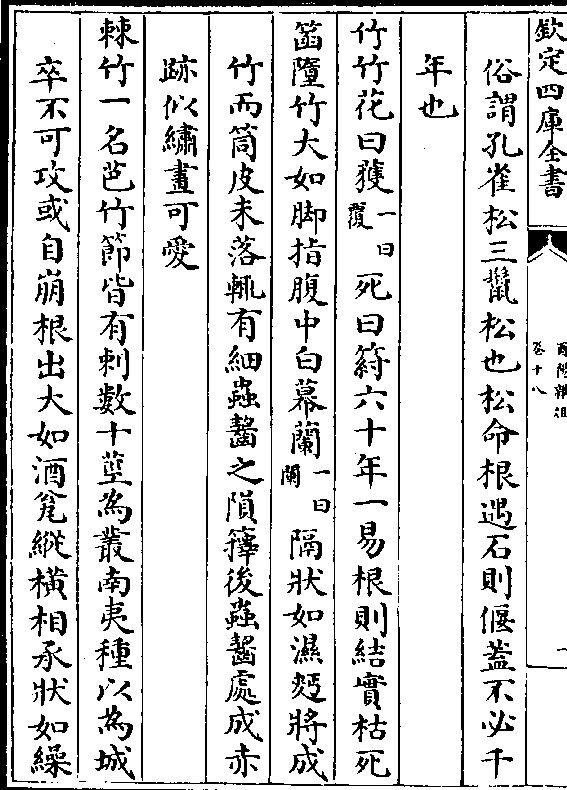 欽定四庫全書
酉陽雜俎
卷十八
俗謂孔雀松三鬛松也松命根遇石則偃葢不必千
年也
竹竹花曰𥳇一曰覆死曰䈙六十年一易根則結實枯死
箘墮竹大如脚指腹中白幕蘭一曰闌隔狀如濕麪將成
竹而筒皮未落輒有細蟲齧之隕籜後蟲齧處成赤
跡似繡畫可愛
棘竹一名芭竹節皆有刺數十莖為叢南夷種以為城
卒不可攻或自崩根出大如酒瓮縱橫相承狀如繰